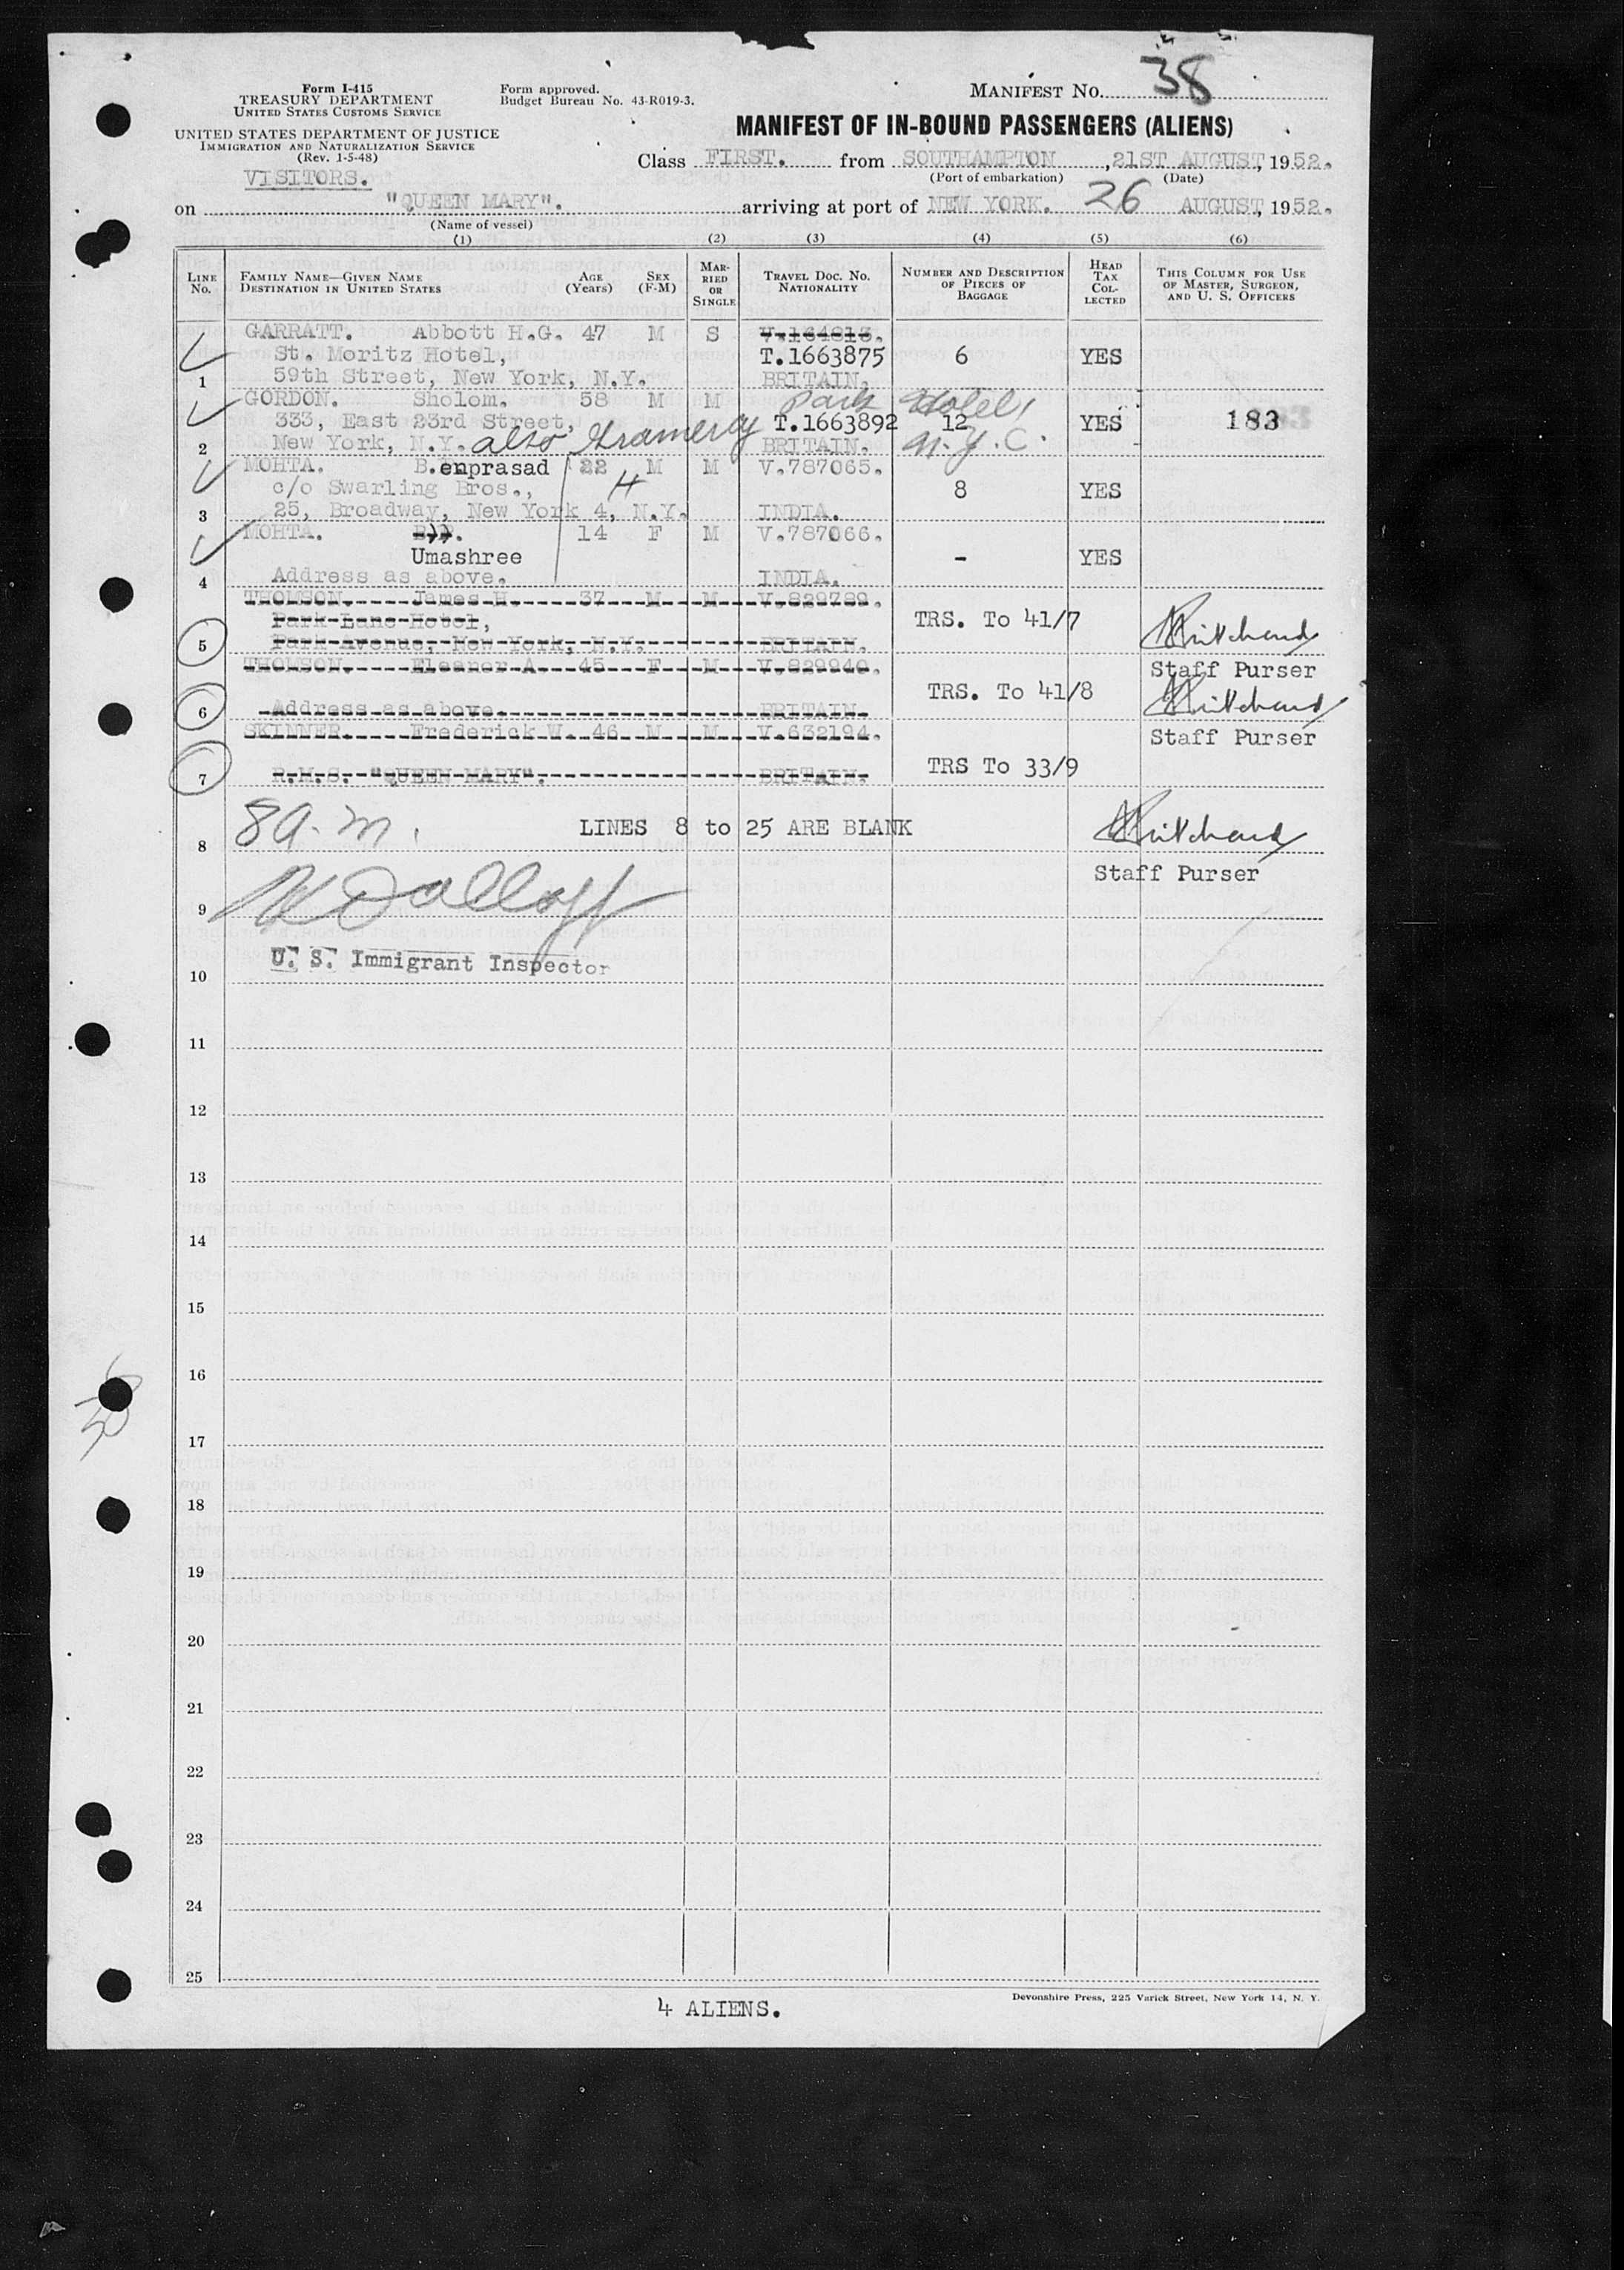 Form I-415
TREASURY DEPARTMENT
UNITED STATES CUSTOMS SERVICE
UNITED STATES DEPARTMENT OF JUSTICE
IMMIGRATION AND NATURALIZATION SERVICE
(Rev. 1-5-48)
VISITORS.
Form approved.
Budget Bureau No. 43-R019-3.
MANIFEST NO. 38
MANIFEST OF IN-BOUND PASSENGERS (ALIENS)
Class FIRST. from SOUTHAMPTON, 21ST AUGUST, 1952.
(Port of embarkation) (Date)
on "QUEEN MARY". arriving at port of NEW YORK. 26 AUGUST, 1952.
(Name of vessel)
(1) (2) (3) (4) (5) (6)
LINE NO. FAMILY NAME—GIVEN NAME DESTINATION IN UNITED STATES AGE (Years) SEX (F-M) MARRIED OR SINGLE TRAVEL DOC. NO. NATIONALITY NUMBER AND DESCRIPTION OF PIECES OF BAGGAGE HEAD TAX COLLECTED THIS COLUMN FOR USE OF MASTER, SURGEON, AND U. S. OFFICERS
GARRATT. Abbott H.G. 47 M S V.164813.
St. Moritz Hotel, T.1663875 6 YES
1 59th Street, New York, N.Y. BRITAIN.
GORDON. Sholom. 58 M M Park Hotel,
333, East 23rd Street, T.1663892 12 YES 183
2 New York, N.Y. also Gramercy BRITAIN. N.Y.C.
MOHTA. B.enprasad 22 M M V.787065.
c/o Swarling Bros., H 8 YES
3 25, Broadway, New York 4, N.Y. INDIA.
MOHTA. 14 F M V.787066.
Umashree - YES
4 Address as above. INDIA.
THOMSON. James H. 37 M M V.829789.
Park Lane Hotel, TRS. To 41/7 Pritchard
5 Park Avenue, New York, N.Y. BRITAIN.
THOMSON. Eleanor A. 45 F M V.829940. Staff Purser
TRS. To 41/8 Pritchard
6 Address as above. BRITAIN.
SKINNER. Frederick W. 46 M M V.632194. Staff Purser
7 R.M.S. "QUEEN MARY". BRITAIN. TRS To 33/9
8 8 a.m. LINES 8 to 25 ARE BLANK Pritchard
Staff Purser
9
U. S. Immigrant Inspector
10
11
12
13
14
15
16
17
18
19
20
21
22
23
24
25
4 ALIENS.
Devonshire Press, 225 Varick Street, New York 14, N. Y.